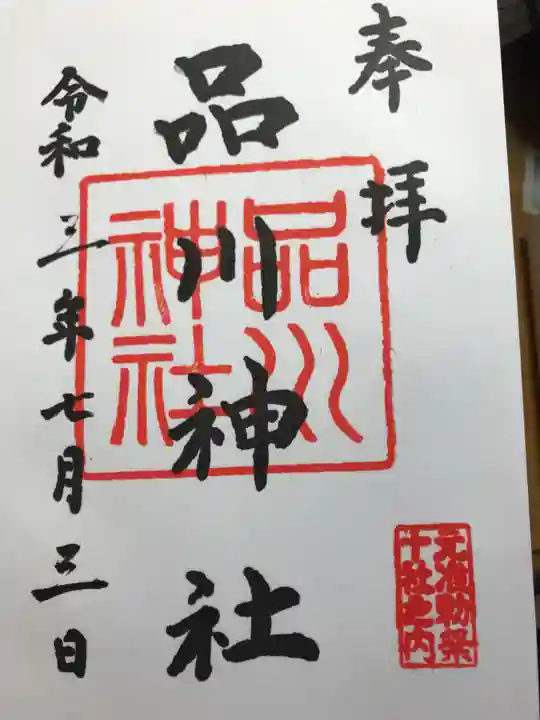 奉拝
品川神社
令和三年七月三日
品川
神社
元准勅祭
十社之内